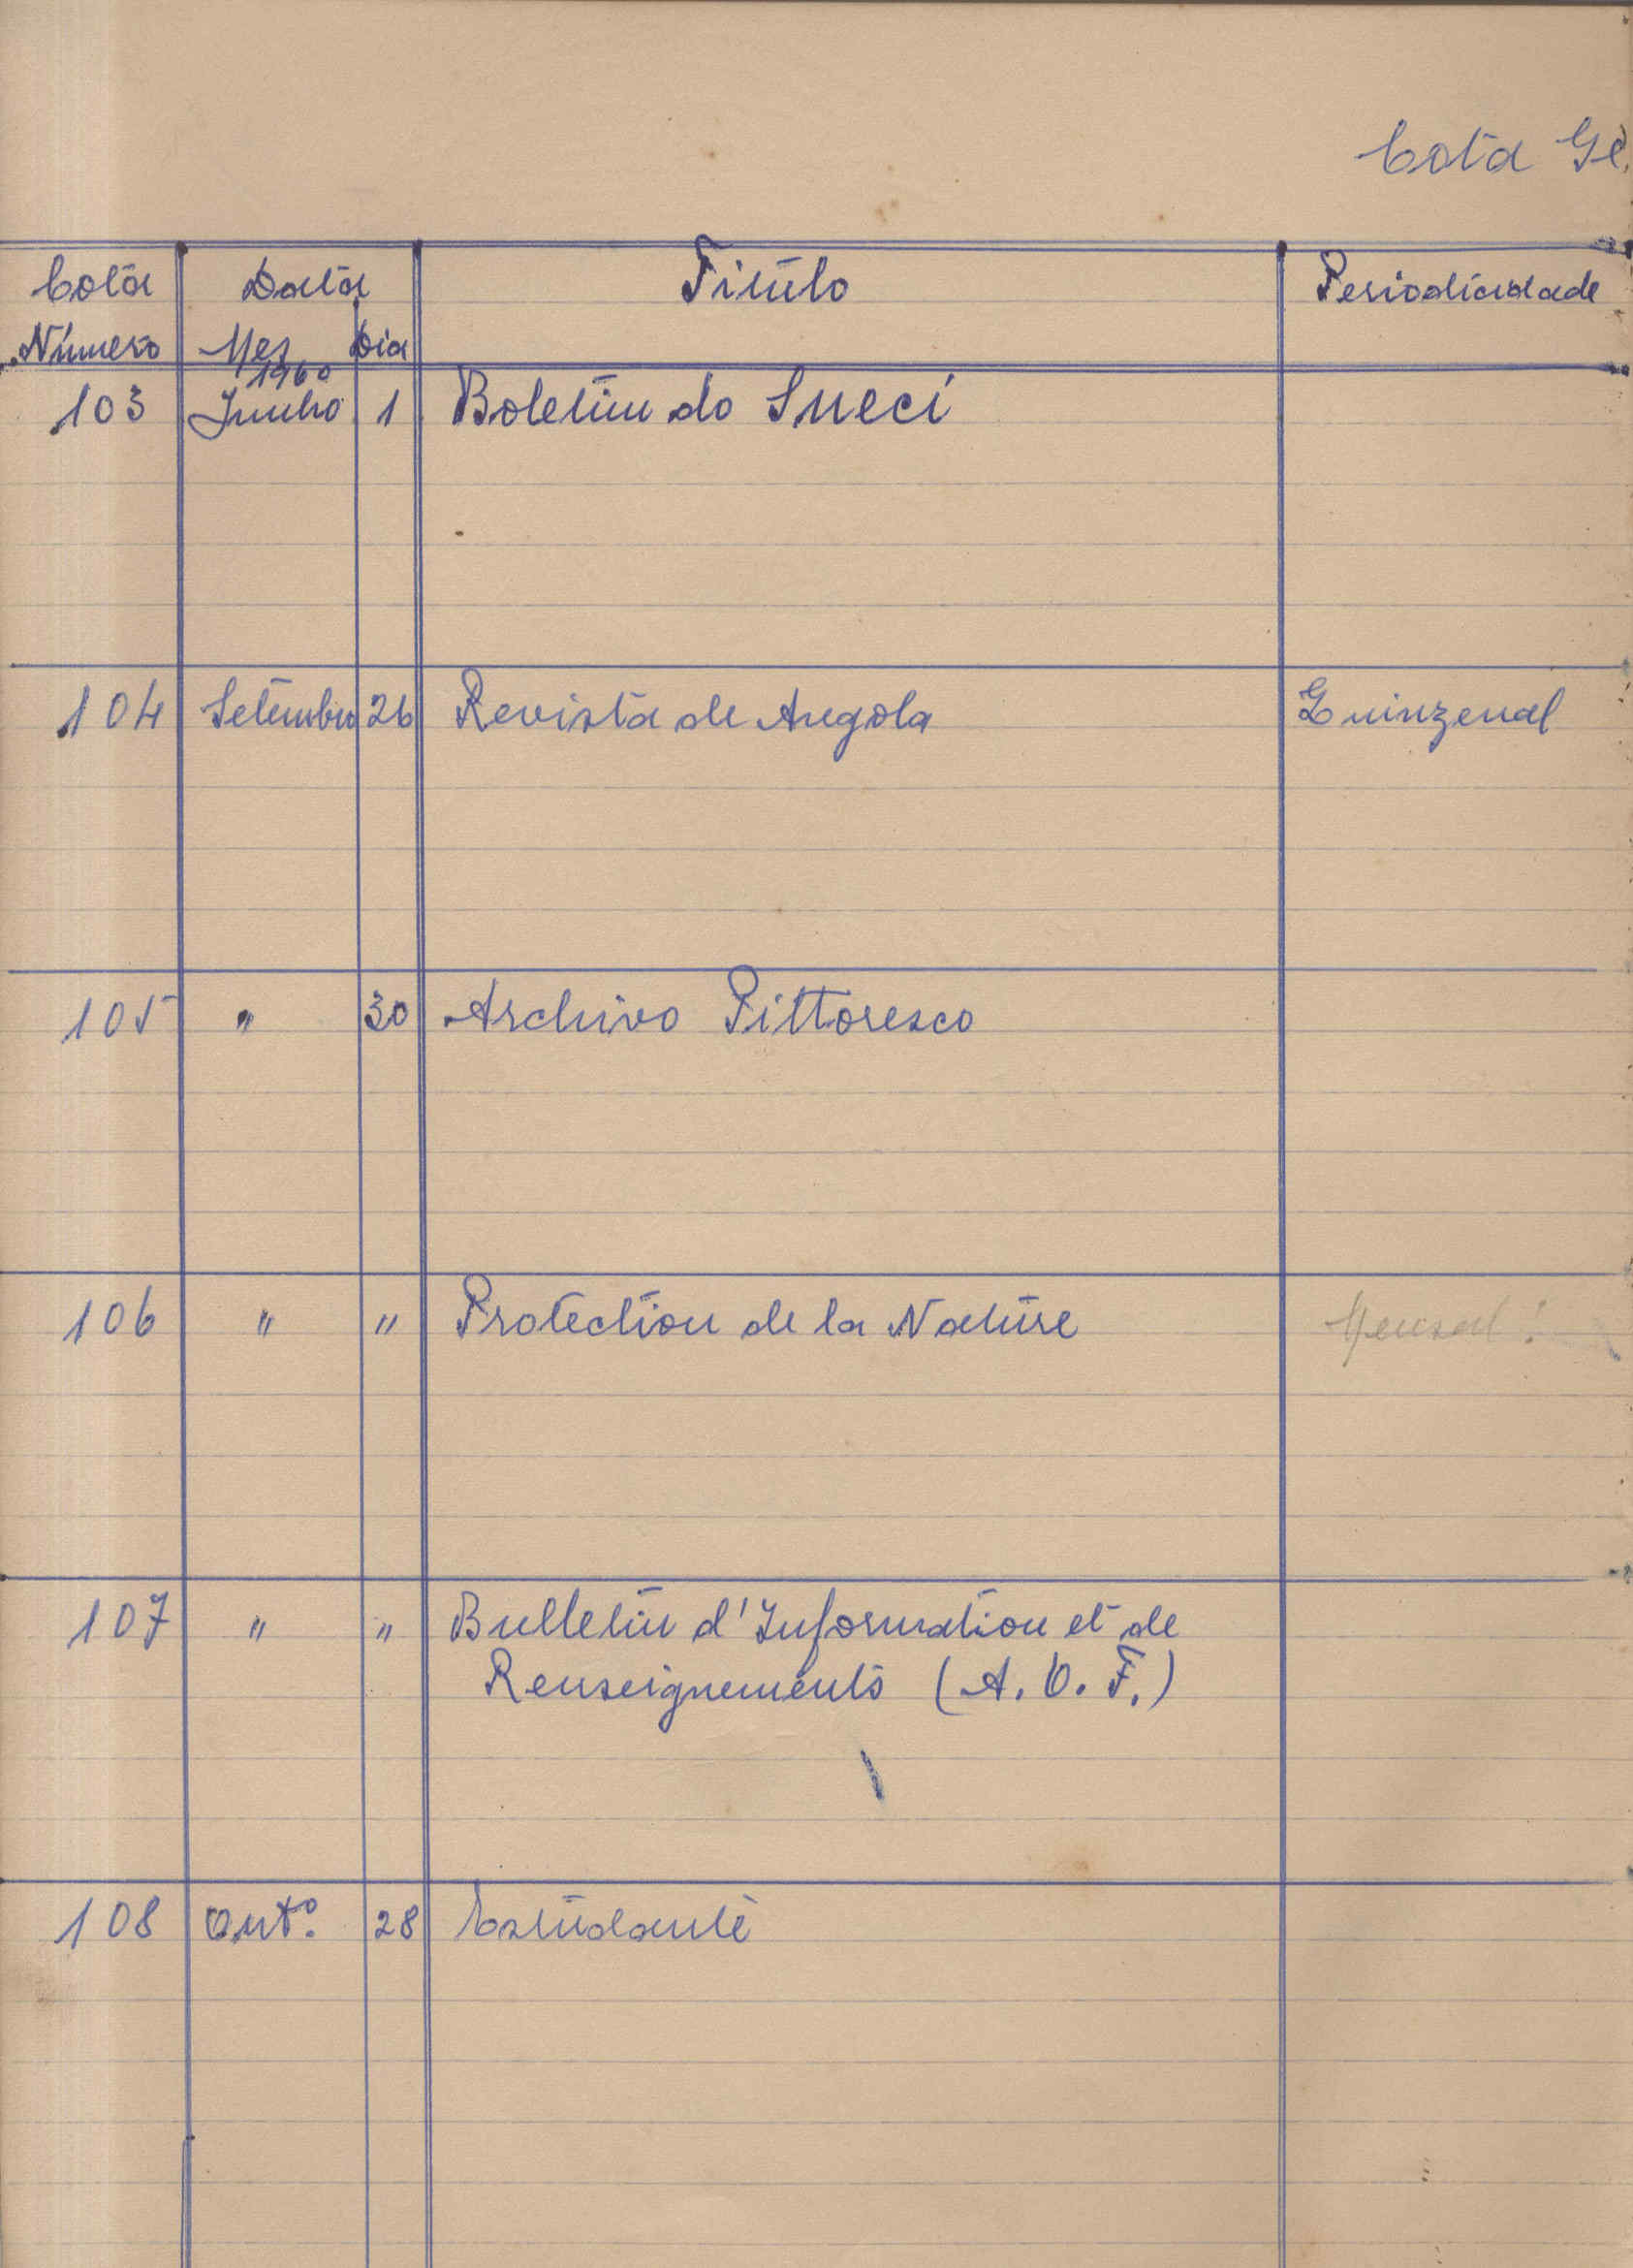 Cota Ge
Cota Data Título Periodicidade
Número Mes Dia
1960
103 Junho 1 Boletim do Sneci
104 Setembro 26 Revista de Angola Quinzenal
105 " 30 Archivo Pittoresco
106 " " Protection de la Nature Mensal
107 " " Bulletin d'Information et de
Renseignements (A. O. F.)
108 Outº. 28 Estudante